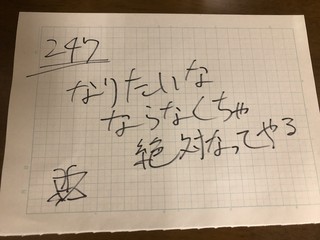 247
なりたいな
ならなくちゃ
絶対なってやる